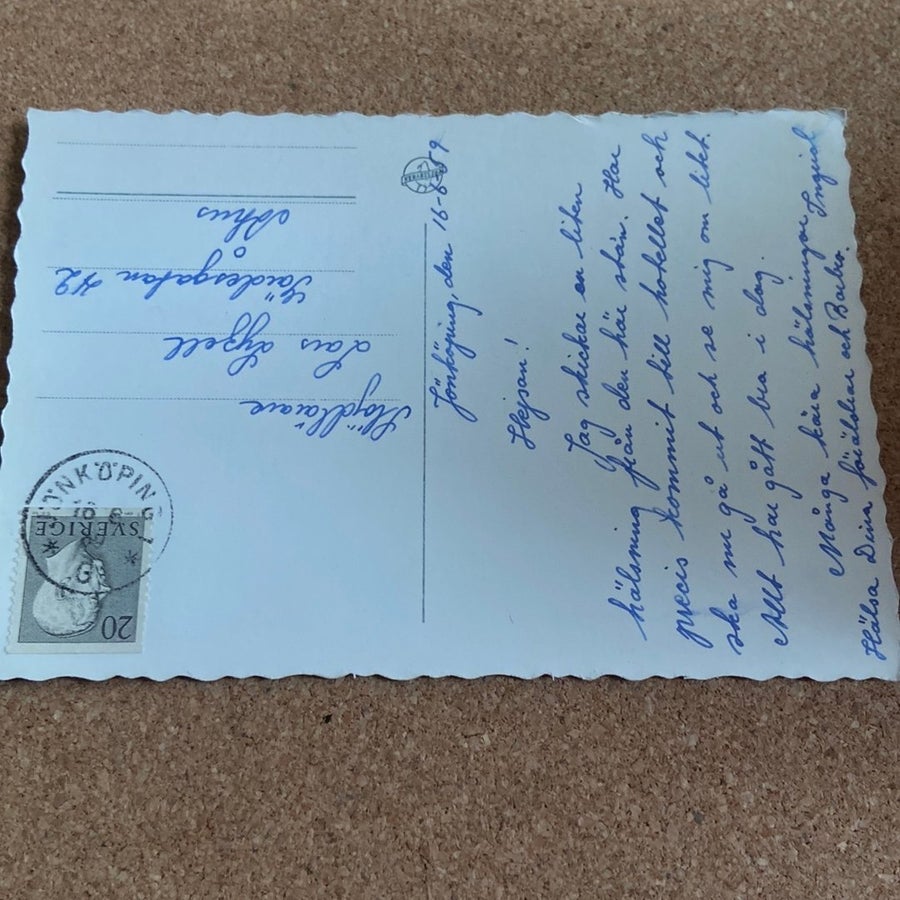 Jönköping, den 16-6-59
Hejsan!
Jag skickar en liten
hälsning från den här stan. Har
precis kommit till hotellet och
ska nu gå ut och se mig om litet.
Allt har gått bra i dag.
Många kära hälsningar Ingrid
Hälsa Dina föräldrar och Barbro.
Slöjdlärare
Lars Lyzell
Södergatan 42
Åhus
JÖNKÖPING
SVERIGE
20